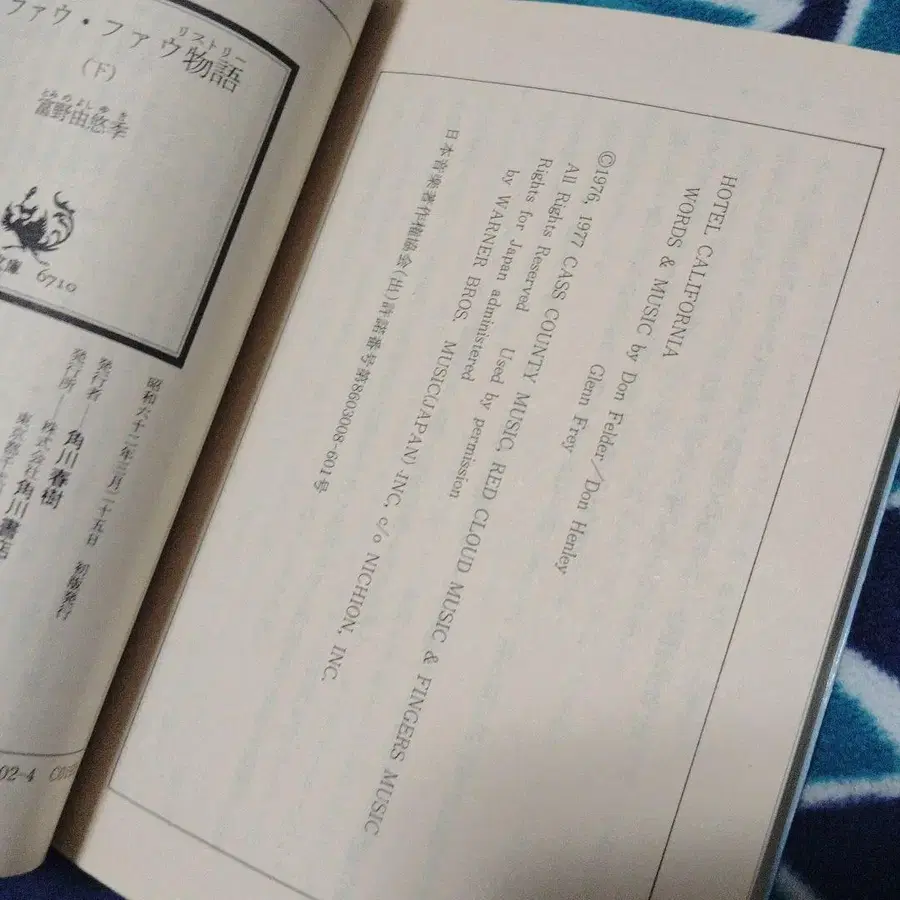 HOTEL CALIFORNIA
WORDS & MUSIC by Don Felder/Don Henley
Glenn Frey
©1976, 1977 CASS COUNTY MUSIC, RED CLOUD MUSIC & FINGERS MUSIC
All Rights Reserved Used by permission
Rights for Japan administered
by WARNER BROS. MUSIC(JAPAN) INC, c/o NICHION, INC.
日本音楽著作権協会(出)許諾番号第8603008-601号
リストリー
ファウ・ファウ物語
(下)
とみのよしゆき
富野由悠季
庫 6710
昭和六十二年三月二十五日 初版発行
発行者—角川春樹
発行所—株式会社角川書店
東京都千
02-4